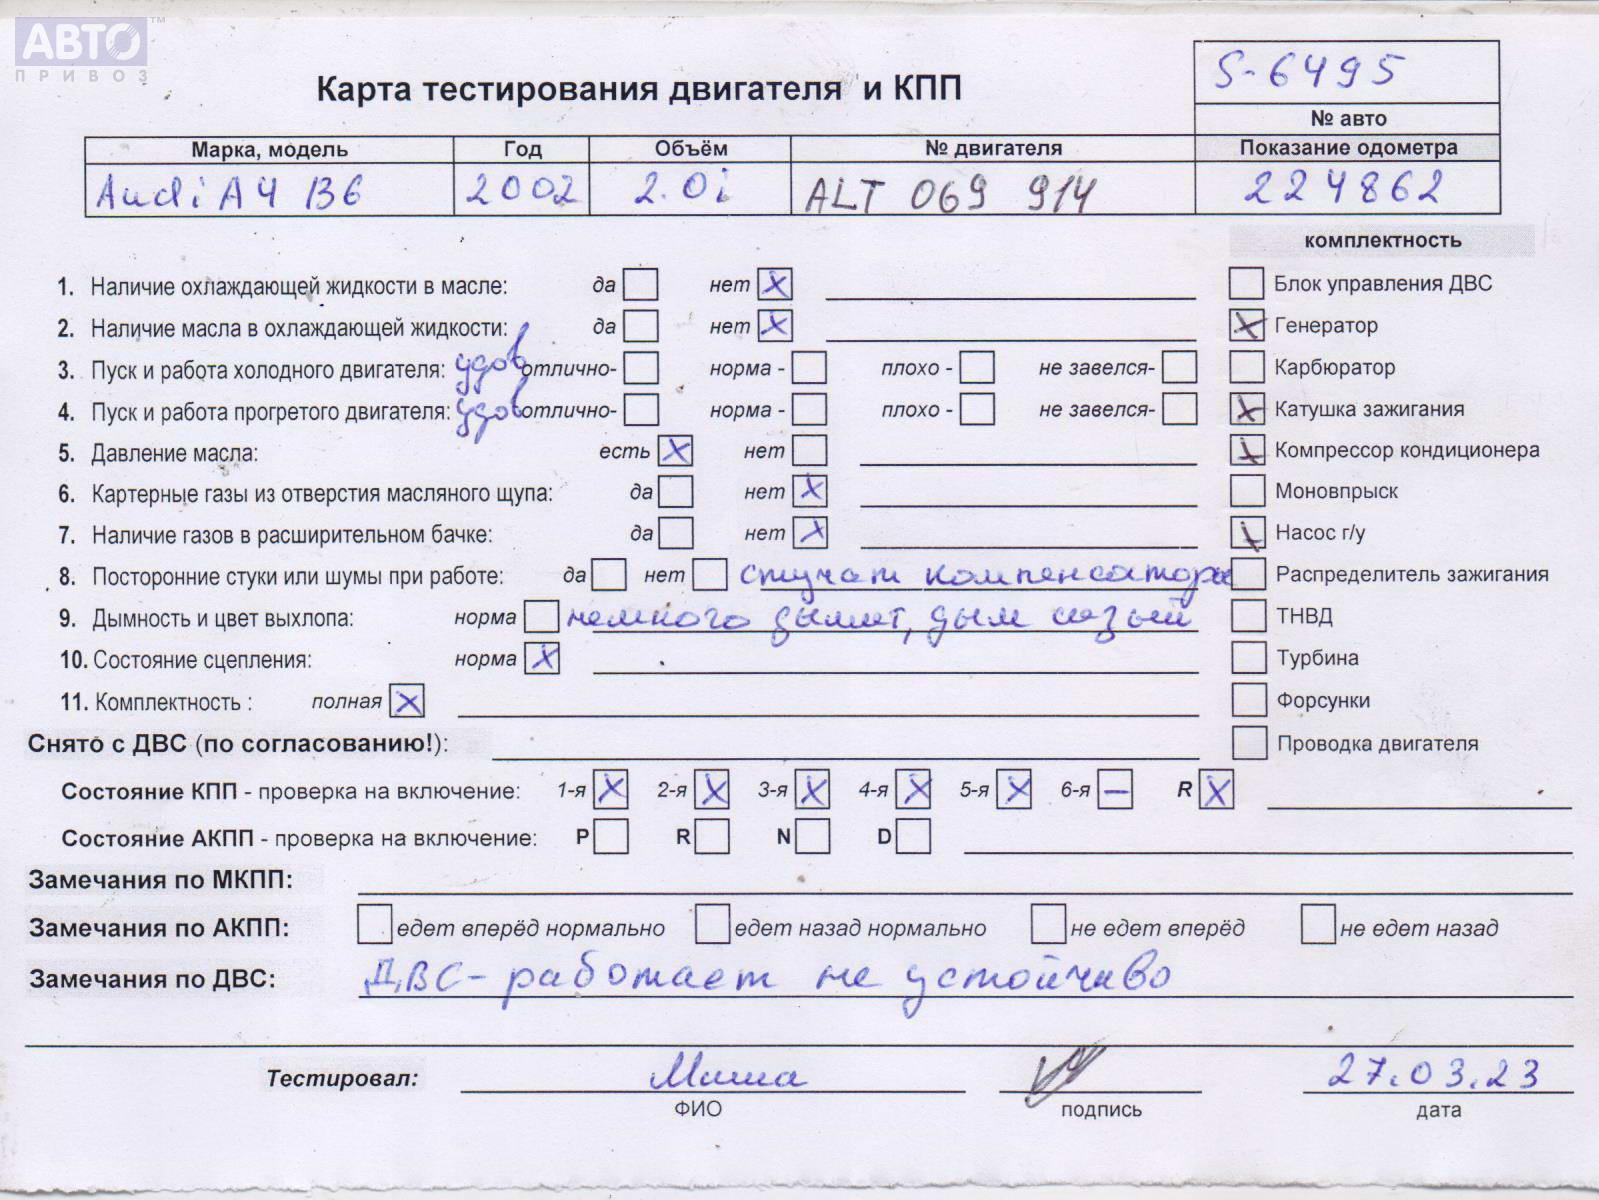 АВТО™
ПРИВОЗ
Карта тестирования двигателя и КПП
S-6495
№ авто
Марка, модель Год Объём № двигателя Показание одометра
Audi A4 B6 2002 2.0i ALT 069 914 224862
комплектность
1. Наличие охлаждающей жидкости в масле: да нет X
Блок управления ДВС
2. Наличие масла в охлаждающей жидкости: да нет X
X Генератор
3. Пуск и работа холодного двигателя: удов отлично- норма - плохо - не завелся-
Карбюратор
4. Пуск и работа прогретого двигателя: удов отлично- норма - плохо - не завелся-
X Катушка зажигания
5. Давление масла: есть X нет
X Компрессор кондиционера
6. Картерные газы из отверстия масляного щупа: да нет X
Моновпрыск
7. Наличие газов в расширительном бачке: да нет X
X Насос г/у
8. Посторонние стуки или шумы при работе: да нет стучат компенсатора
Распределитель зажигания
9. Дымность и цвет выхлопа: норма немного дымит, дым сизый
ТНВД
10. Состояние сцепления: норма X
Турбина
11. Комплектность : полная X
Форсунки
Снято с ДВС (по согласованию!):
Проводка двигателя
Состояние КПП - проверка на включение: 1-я X 2-я X 3-я X 4-я X 5-я X 6-я – R X
Состояние АКПП - проверка на включение: P R N D
Замечания по МКПП:
Замечания по АКПП: едет вперёд нормально едет назад нормально не едет вперёд не едет назад
Замечания по ДВС: ДВС - работает не устойчиво
Тестировал: Миша 27.03.23
ФИО подпись дата